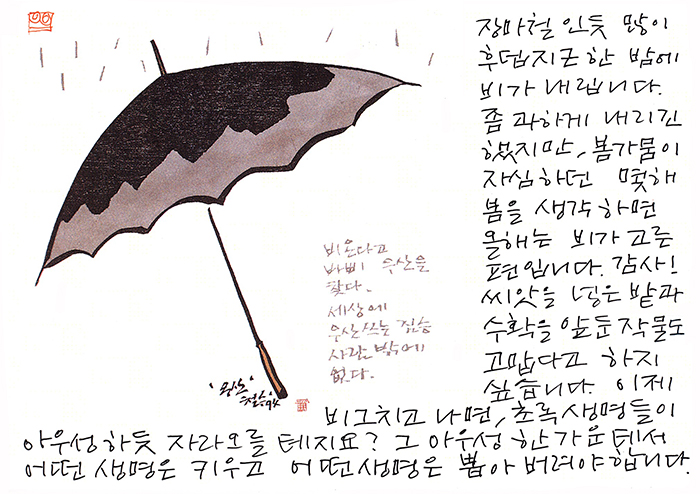 장마철인듯 많이
후덥지근 한 밤에
비가 내립니다.
좀 과하게 내리긴
했지만, 봄가뭄이
자심하던 몇해
봄을 생각하면
올해는 비가 고른
편입니다. 감사!
씨앗을 넣은 밭과
수확을 앞둔 작물도
고맙다고 하지
싶습니다. 이제
비그치고 나면, 초록생명들이
아우성하듯 자라오를 테지요? 그 아우성 한가운데서
어떤 생명은 키우고 어떤생명은 뽑아 버려야합니다.
비온다고
바삐 우산을
폈다.
세상에
우산쓰는 짐승
사람밖에
없다.
'우산'
철수94